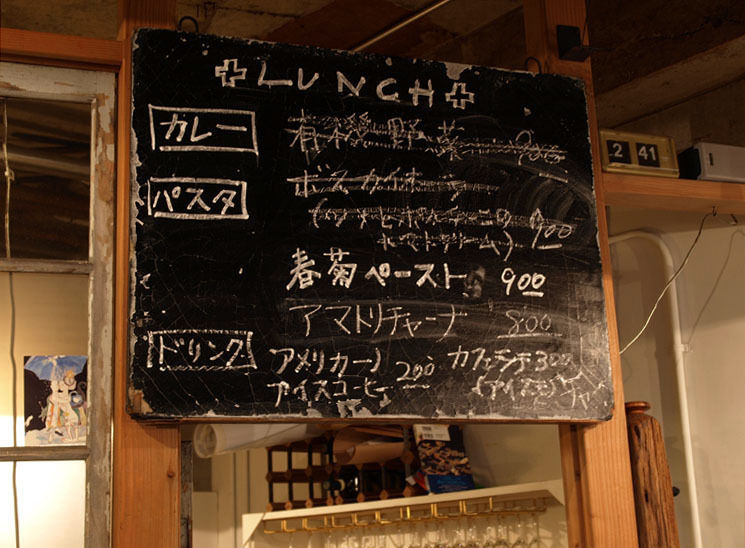 LUNCH
カレー 有機野菜 900
パスタ ボスカイオーラ
900
春菊ペースト 900
アマトリチャーナ 800
ドリンク アメリカーノ 200 カフェラテ 300
アイスコーヒー (アイスモ)
2 41